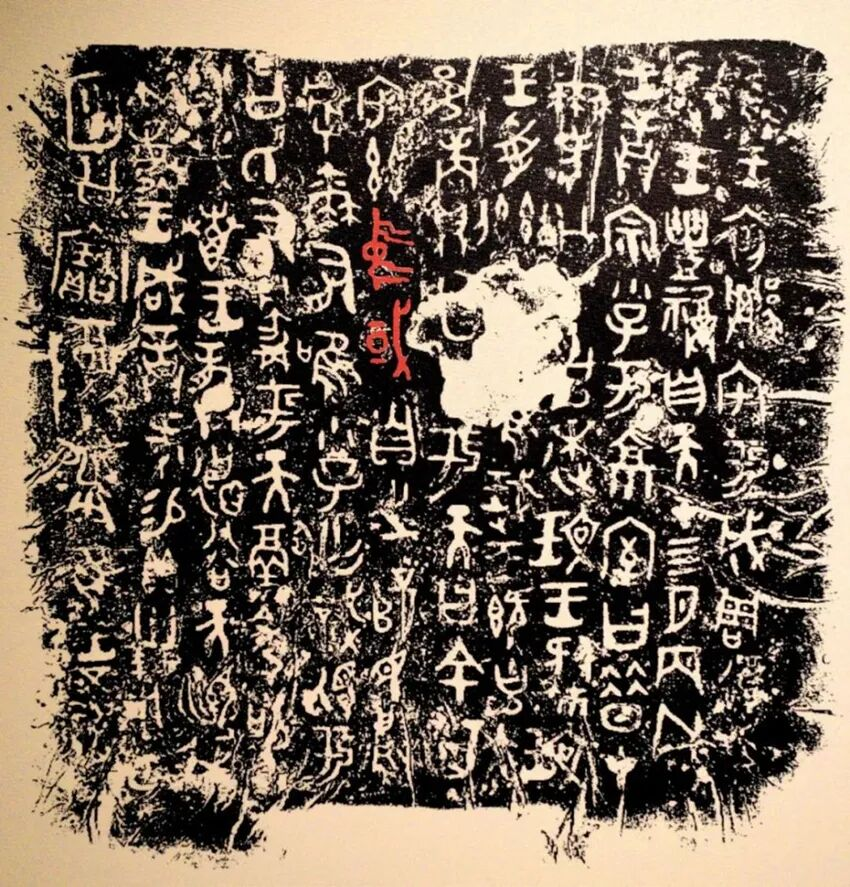 隹王初遷宅于成周復㐭
珷王豐福自天才四月丙戌
王誥宗小子于京室曰昔才
爾考公氏克逨玟王肆玟
王受茲珷王既克大
邑商則廷告于天曰余其
宅茲中或自之乂民烏
虖爾有唯小子亡識視于
公氏有爵于天徹令敬
享哉叀王恭德谷天訓我
不敏王咸誥易貝卅朋用乍
公寶尊彝隹王五祀